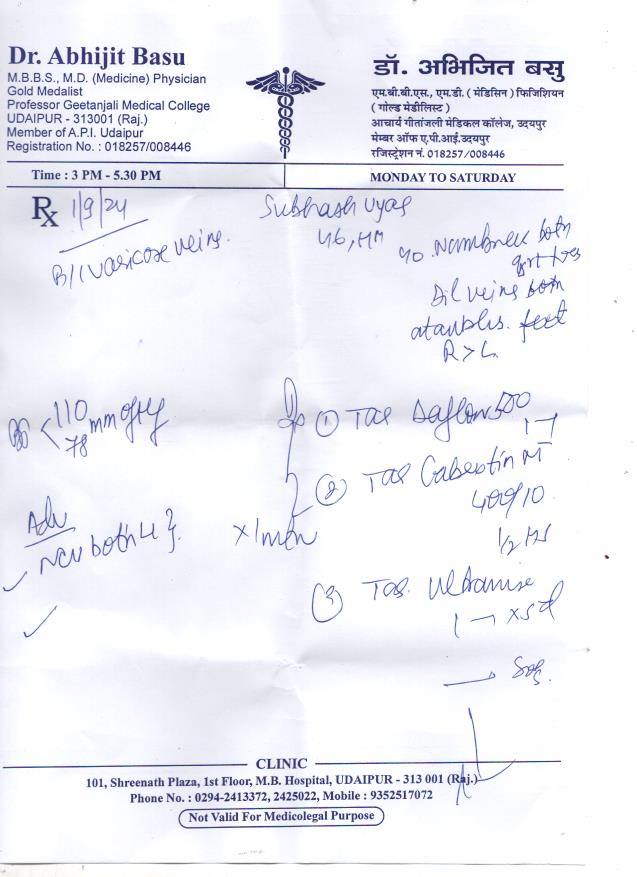 Dr. Abhijit Basu
M.B.B.S., M.D. (Medicine) Physician
Gold Medalist
Professor Geetanjali Medical College
UDAIPUR - 313001 (Raj.)
Member of A.P.I. Udaipur
Registration No. : 018257/008446
डॉ. अभिजित बसु
एम.बी.बी.एस., एम.डी. ( मेडिसिन ) फिजिशियन
( गोल्ड मेडीलिस्ट )
आचार्य गीतांजली मेडिकल कॉलेज, उदयपुर
मेम्बर ऑफ ए.पी.आई.उदयपुर
रजिस्ट्रेशन नं. 018257/008446
Time : 3 PM - 5.30 PM
MONDAY TO SATURDAY
Rx 1/9/24
Subhash Vyas
46,
B/L varicose veins.
Numbness both
toes
Dil veins both
feet
R > L
110
78 mm of Hg
① Tab Daflon 500
② Tab Gabastin
400/10
1/2 HS
Adv
NCV both
x 1
③ Tab.
CLINIC
101, Shreenath Plaza, 1st Floor, M.B. Hospital, UDAIPUR - 313 001 (Raj.)
Phone No. : 0294-2413372, 2425022, Mobile : 9352517072
Not Valid For Medicolegal Purpose